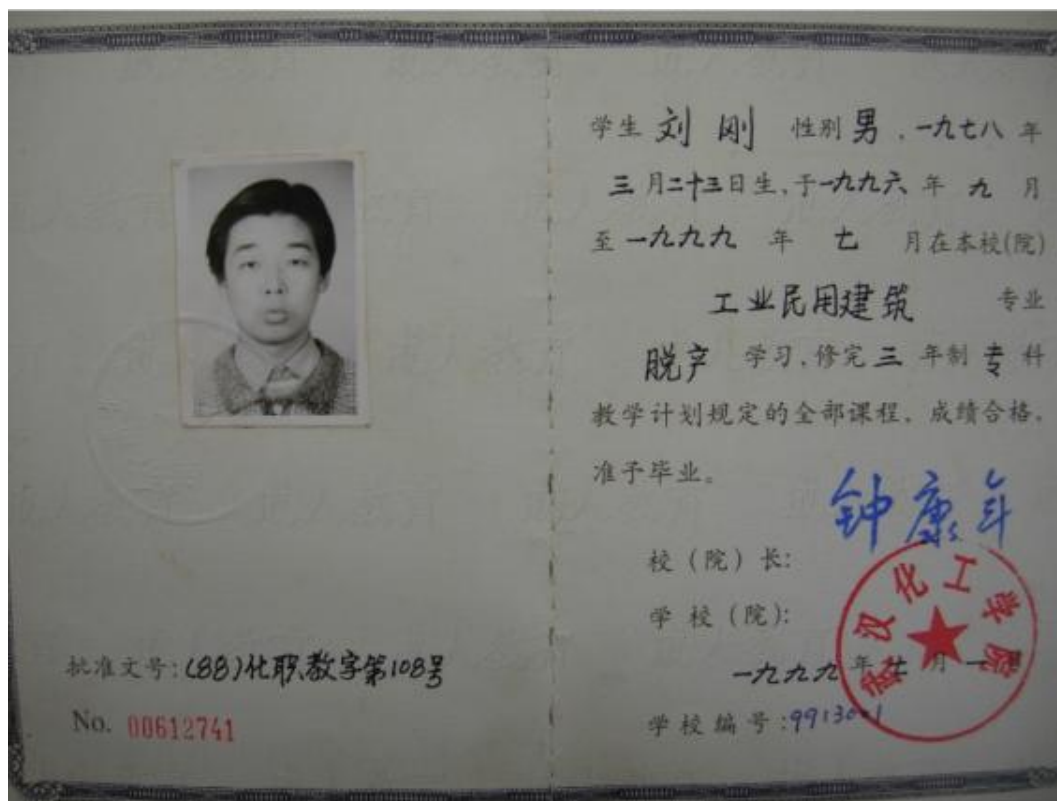 批准文号:(88)化职教字第108号
No. 00612741
学生 刘刚 性别 男 , 一九七八 年
三 月 二十三 日生,于 一九九六 年 九 月
至 一九九九 年 七 月在本校(院)
工业民用建筑 专业
脱产 学习,修完 三 年制 专 科
教学计划规定的全部课程,成绩合格,
准予毕业。
钟康年
校(院)长:
学校(院):
武汉化工学院
一九九九 年 七 月 一 日
学校编号:9913001